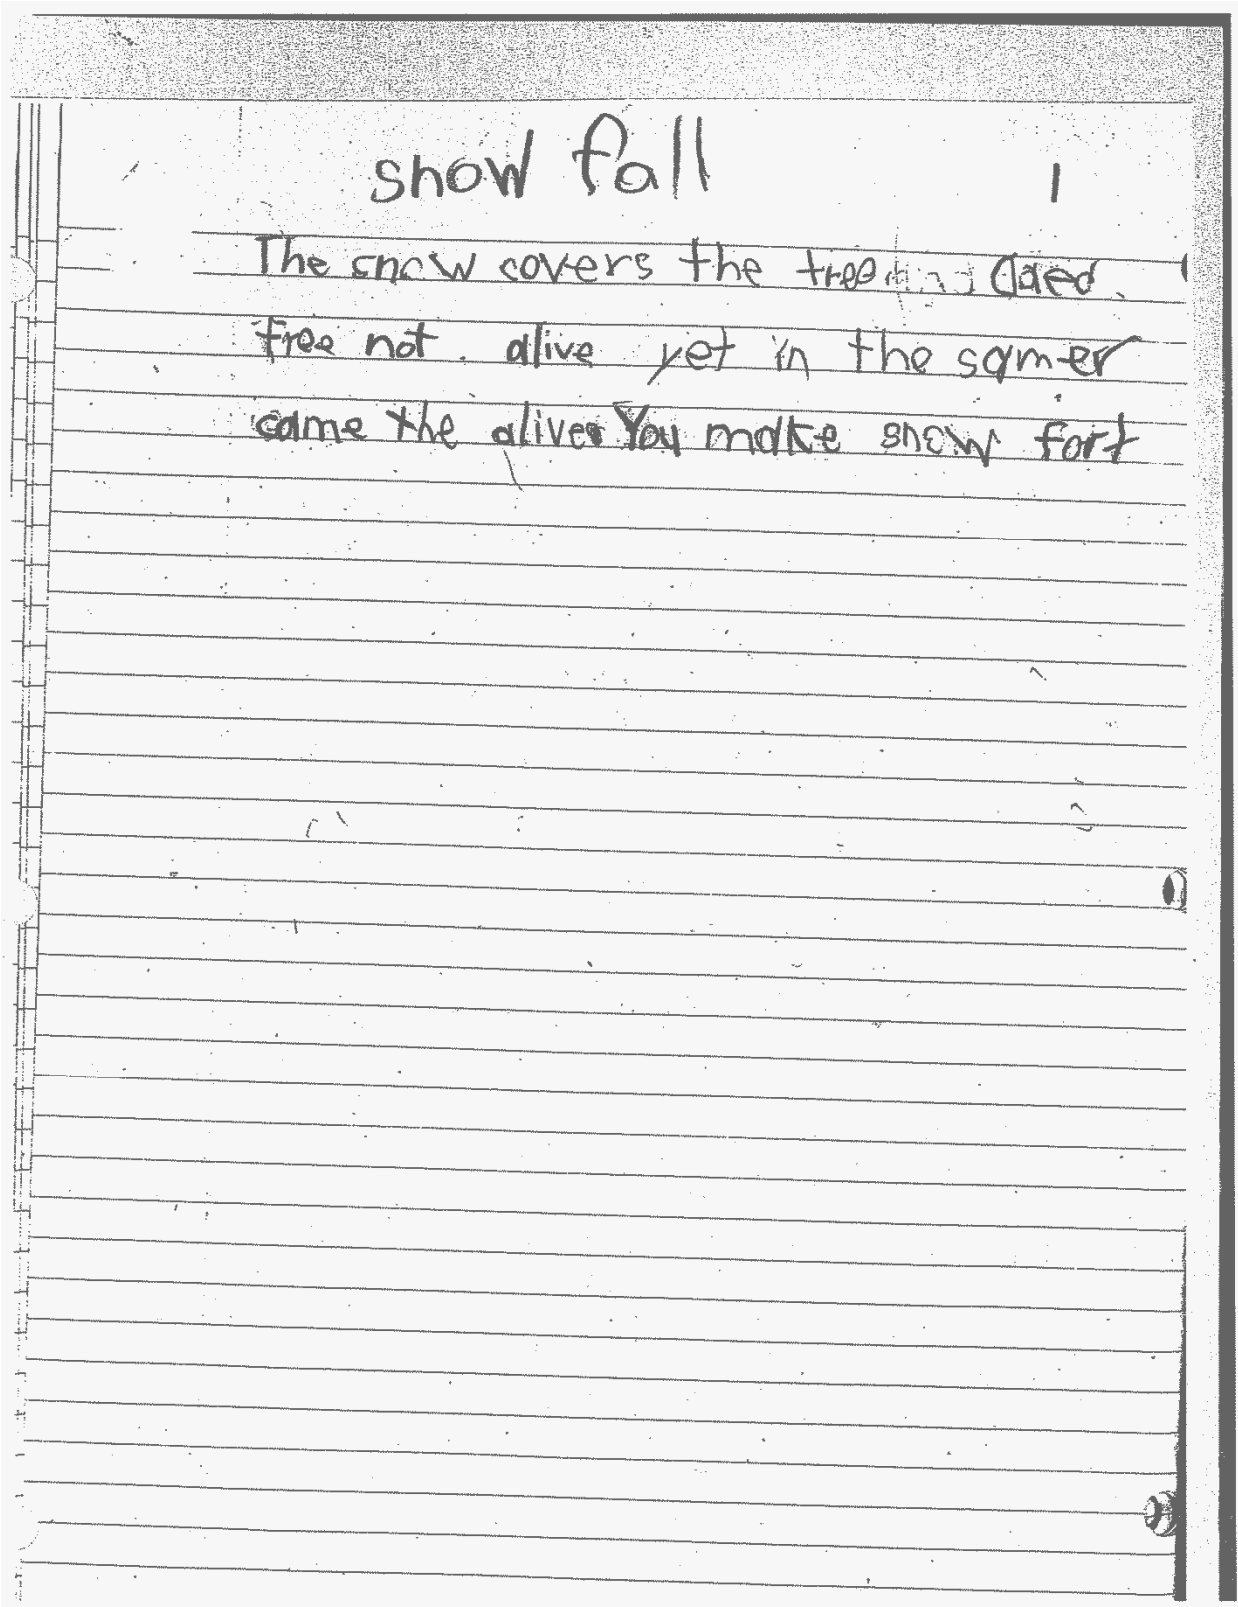 snow fall 1
The snow covers the tree daed.
tree not alive yet in the samer
came the alives You make snow fort